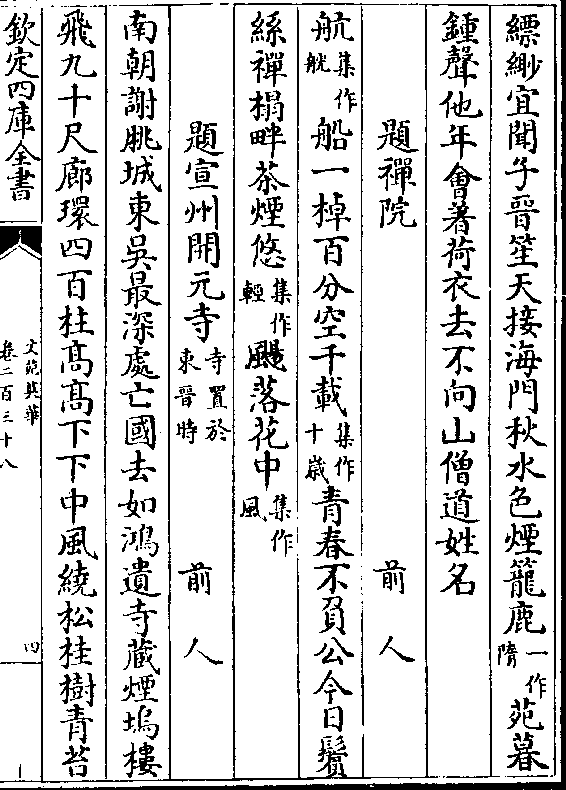 縹緲宜聞子晉笙天接海門秋水色煙籠鹿一作隋苑暮
鍾聲他年會著荷衣去不向山僧道姓名
題禪院　前人
航集作觥船一棹百分空千載集作十歲青春不負公今日鬢
絲禪榻畔茶煙悠集作輕颺落花中集作風
題宣州開元寺寺置於東晉時　前人
南朝謝朓城東吳最深處亡國去如鴻遺寺藏煙塢樓
飛九十尺廊環四百柱髙髙下下中風繞松桂樹青苔
欽定四庫全書
文苑英華
卷二百三十八
四